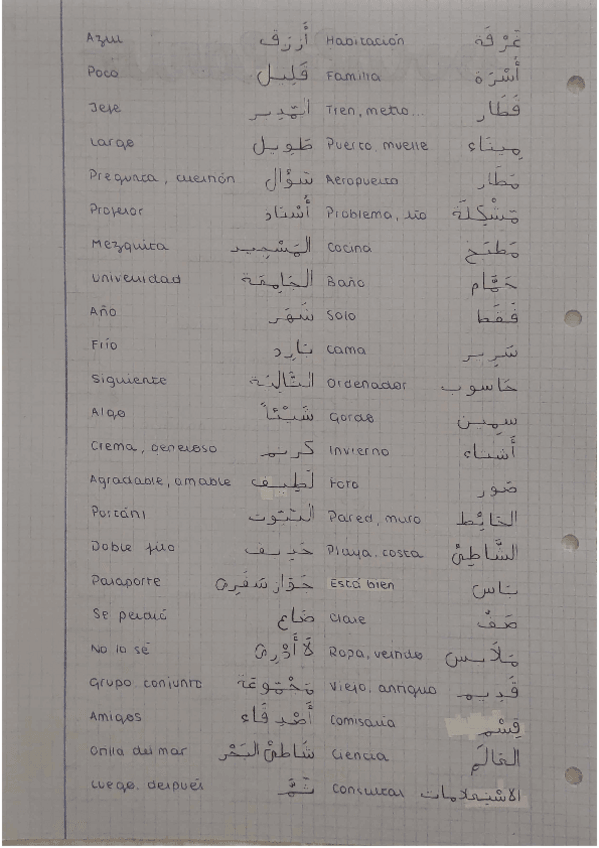 Azul أَزرَق Habitación غُرْفَة
Poco قَليل Familia أُسْرَة
Jefe المُدير Tren, metro... قِطَار
Largo طَويل Puerto, muelle مِيناء
Pregunta, cuestión سُؤال Aeropuerto مَطَار
Profesor أُستاذ Problema, lío مُشْكِلَة
Mezquita المَسْجِيد Cocina مَطبَخ
Universidad الجَامِعَة Baño حَمَّام
Año شَهَر Solo فَقَط
Frío بَارِد Cama سَرير
Siguiente التَّالِيَة Ordenador حَاسوب
Algo شَيْئاً Gordo سمين
Crema, generoso كريم Invierno
Agradable, amable لَطِيف Foto صُور
Pared, muro الحَائِط
Doble filo Playa, costa الشَّاطِئْ
Pasaporte Está bien
Se perdió ضَاع Clase صَفّ
No lo sé لَا أَدْرِي Ropa, vestido مَلَابس
Grupo, conjunto مَجْمُوعَة Viejo, antiguo قَديم
Amigos أَصْدِقَاء Comisaría قِسْم
Orilla del mar شَاطِئْ البَحْر Ciencia العَالَم
Luego, después ثُمَّ Consultar الاسْتِعْلامات